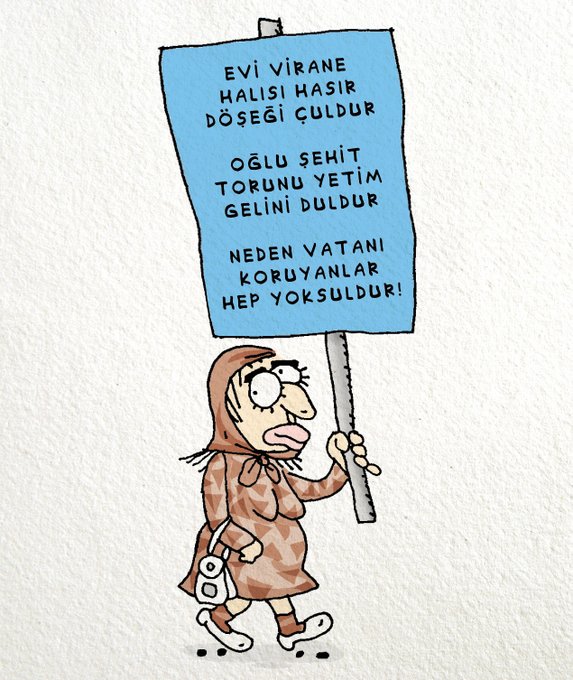 EVİ VİRANE
HALISI HASIR
DÖŞEĞİ ÇULDUR
OĞLU ŞEHİT
TORUNU YETİM
GELİNİ DULDUR
NEDEN VATANI
KORUYANLAR
HEP YOKSULDUR!